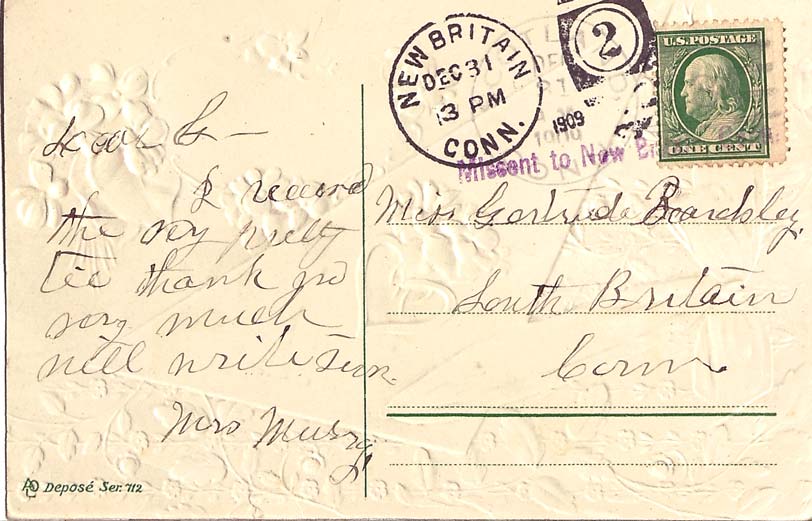 NEW BRITAIN
DEC 31
13 PM
1909
CONN.
2
U.S. POSTAGE
ONE CENT
Missent to New Br
Dear G —
I received
the very pretty
tie thank you
very much
will write soon.
Mrs Murray
Miss Gertrude Beardsley,
South Britain
Conn
Deposé Ser. 712